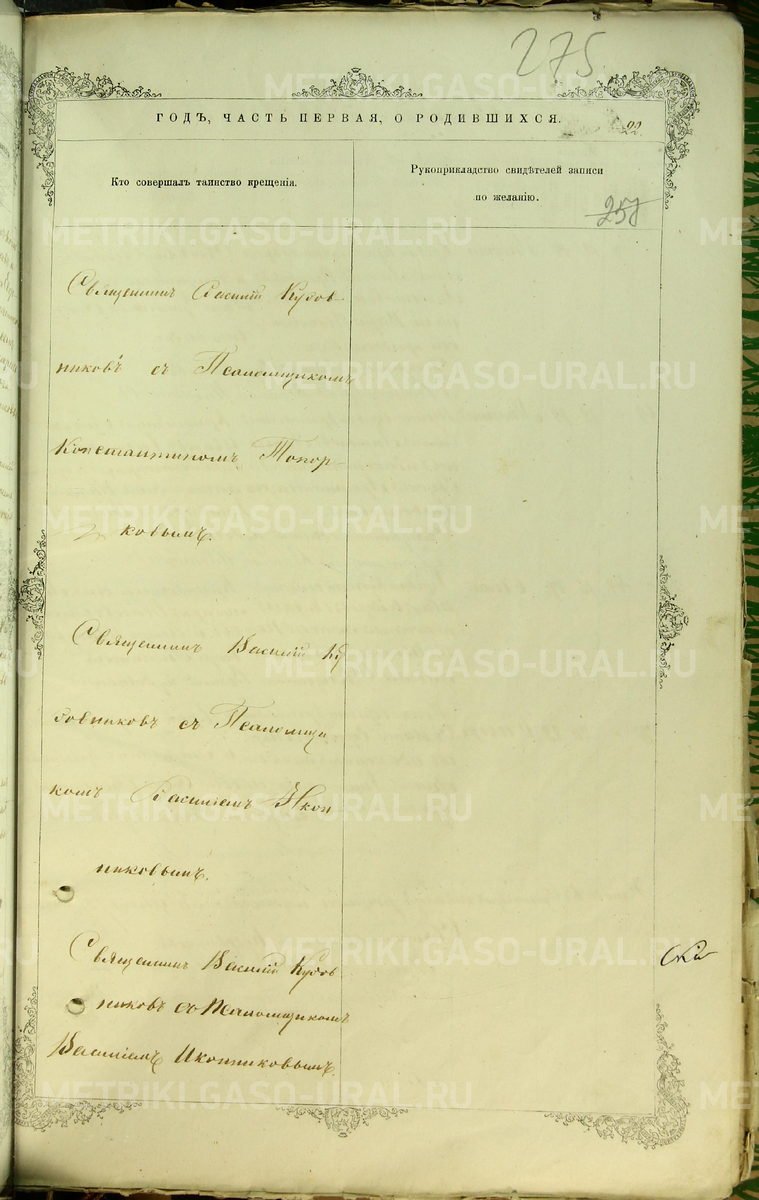 275
ГОДЪ, ЧАСТЬ ПЕРВАЯ, О РОДИВШИХСЯ.
22.
Кто совершалъ таинство крещенія.
Рукоприкладство свидѣтелей записи
по желанію.
Священникъ Василій Кудов
никовъ съ Псаломщикомъ
Константиномъ Топор-
ковымъ.
Священникъ Василій Ку
довниковъ съ Псаломщи
комъ Василіемъ Икон
никовымъ.
Священникъ Василій Кудов
никовъ съ Псаломщикомъ
Василіемъ Иконниковымъ.
METRIKI.GASO-URAL.RU